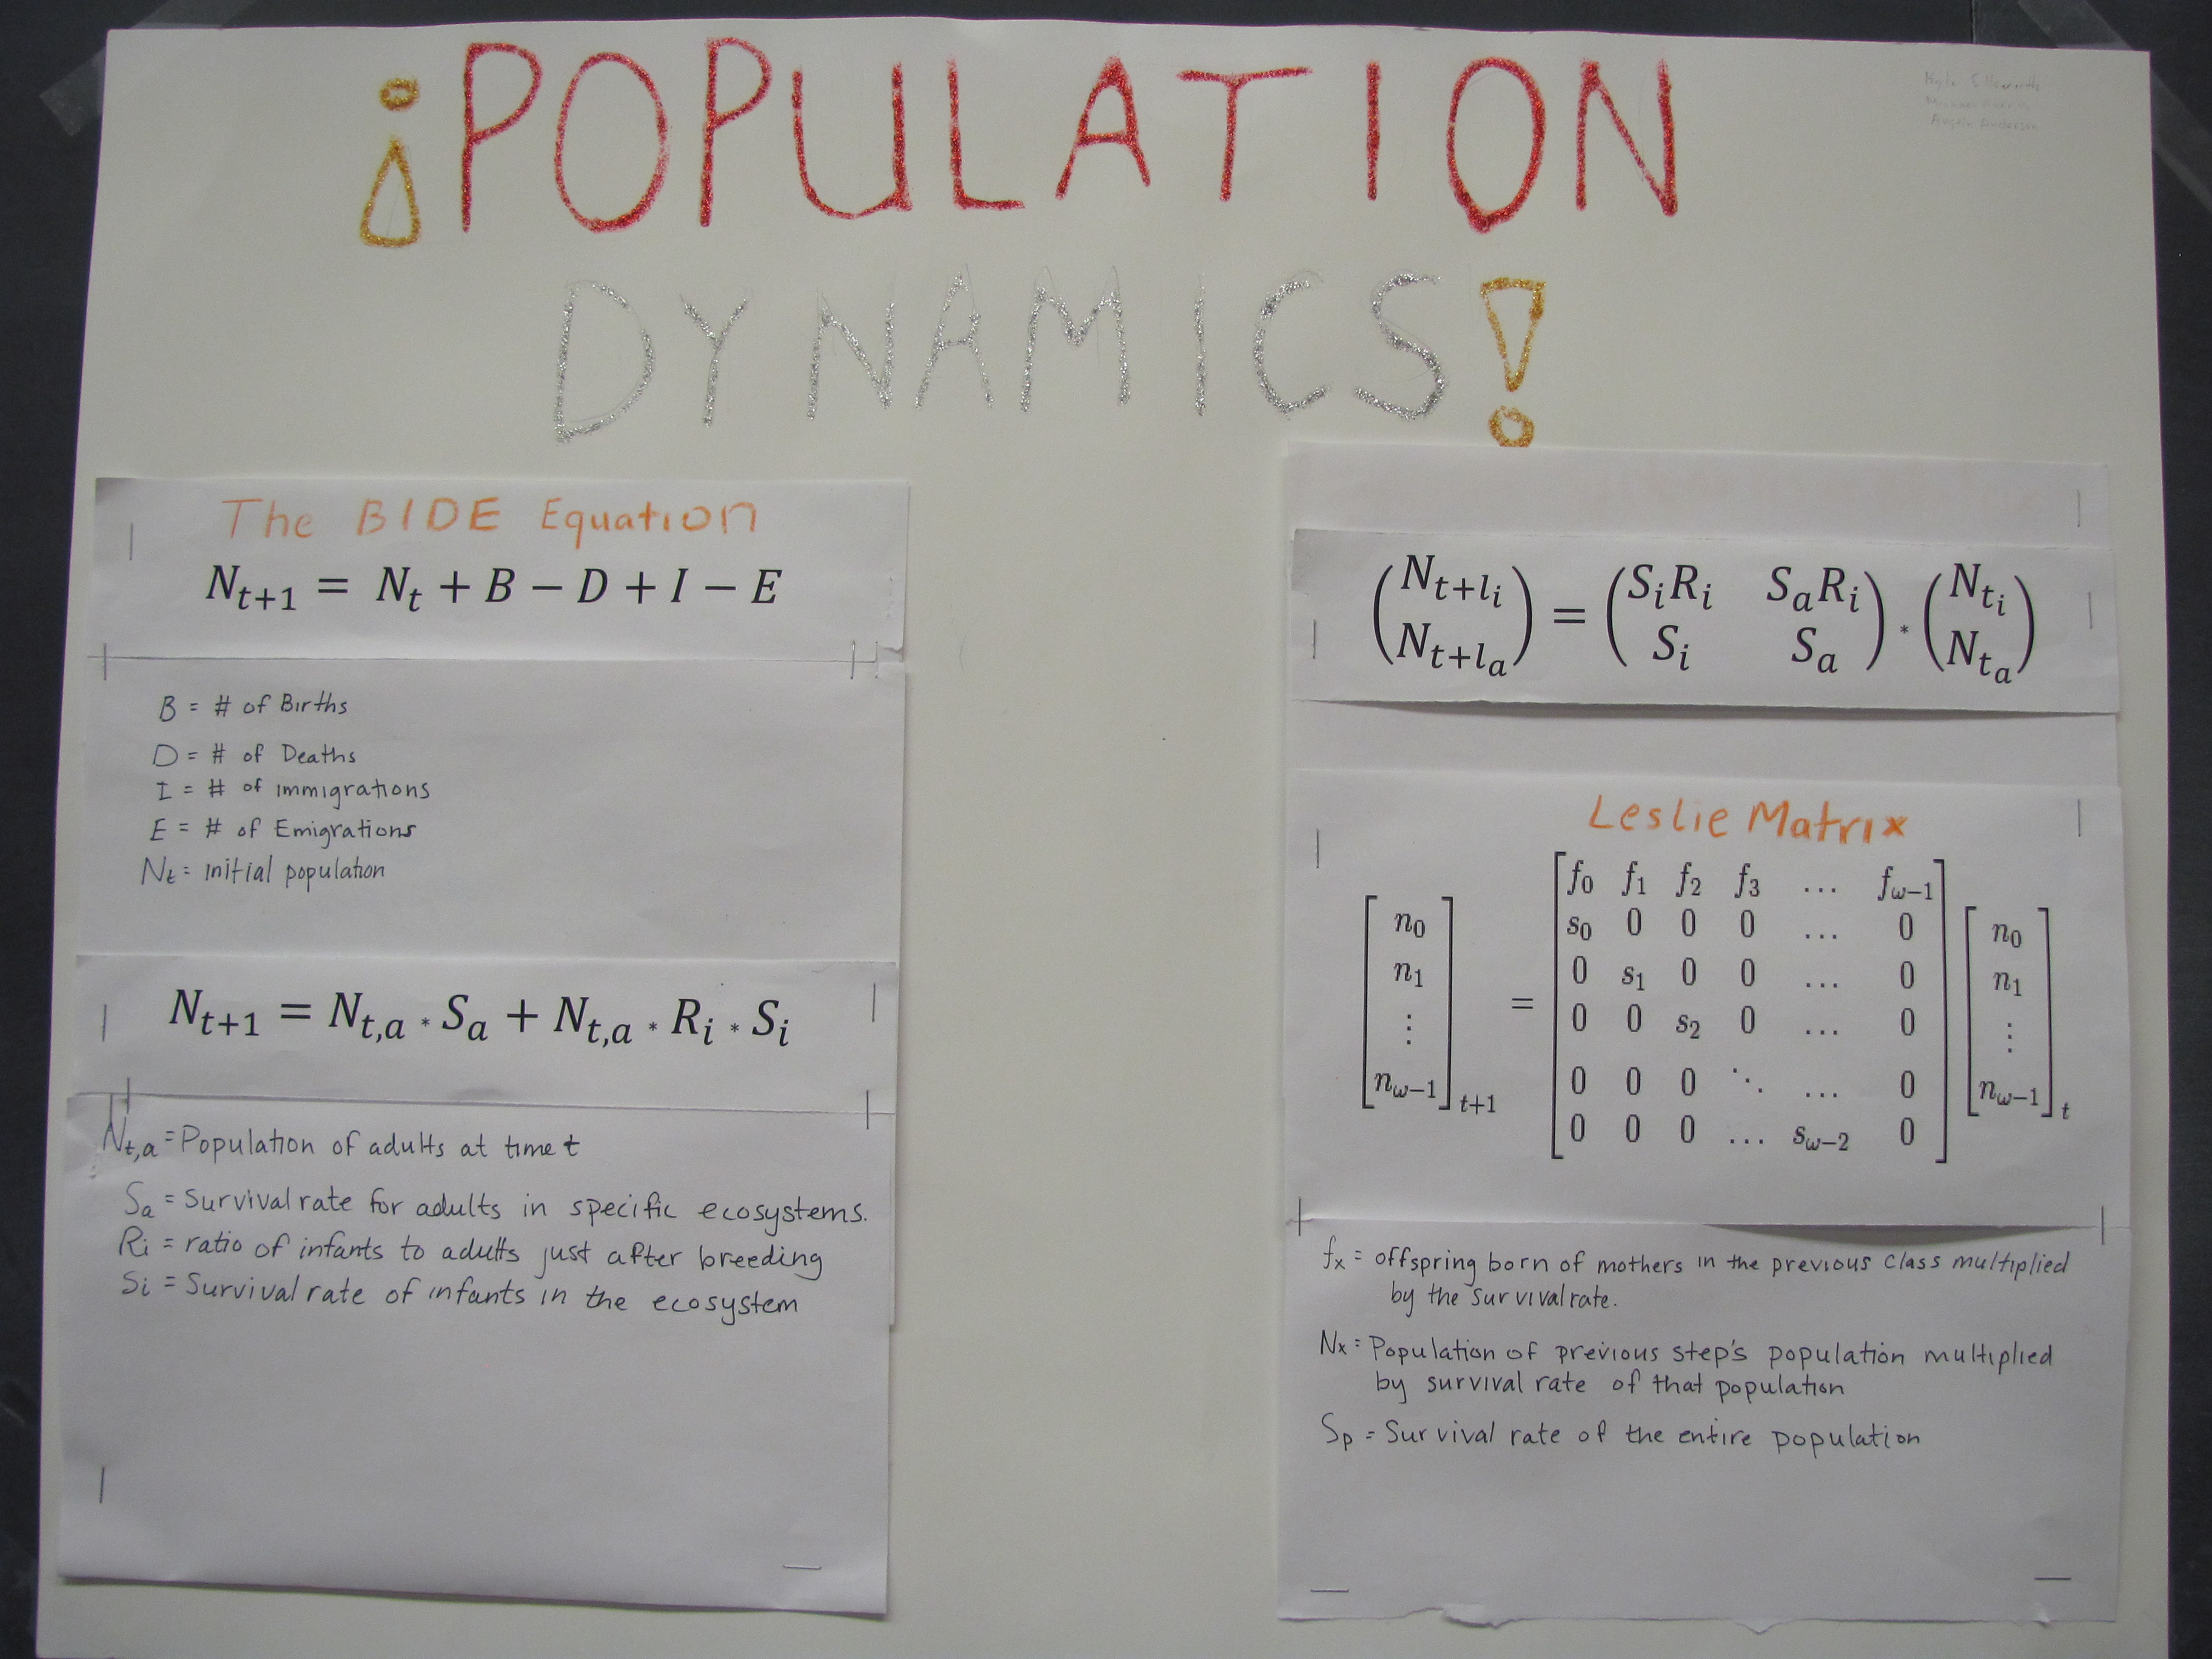 ¡POPULATION
DYNAMICS!
The BIDE Equation
N_{t+1} = N_t + B − D + I − E
B = # of Births
D = # of Deaths
I = # of immigrations
E = # of Emigrations
N_t = initial population
N_{t+1} = N_{t,a} * S_a + N_{t,a} * R_i * S_i
N_{t,a} = Population of adults at time t
S_a = Survival rate for adults in specific ecosystems.
R_i = ratio of infants to adults just after breeding
S_i = Survival rate of infants in the ecosystem
(N_{t+l_i} N_{t+l_a}) = (S_iR_i S_aR_i S_i S_a) * (N_{t_i} N_{t_a})
Leslie Matrix
f_0 f_1 f_2 f_3 … f_{ω−1}
n_0 s_0 0 0 0 … 0 n_0
n_1 0 s_1 0 0 … 0 n_1
⋮ = 0 0 s_2 0 … 0 ⋮
n_{ω−1} t+1 0 0 0 ⋱ … 0 n_{ω−1} t
0 0 0 … s_{ω−2} 0
f_x = offspring born of mothers in the previous class multiplied
by the survival rate.
N_x = Population of previous step's population multiplied
by survival rate of that population
S_p = Survival rate of the entire population